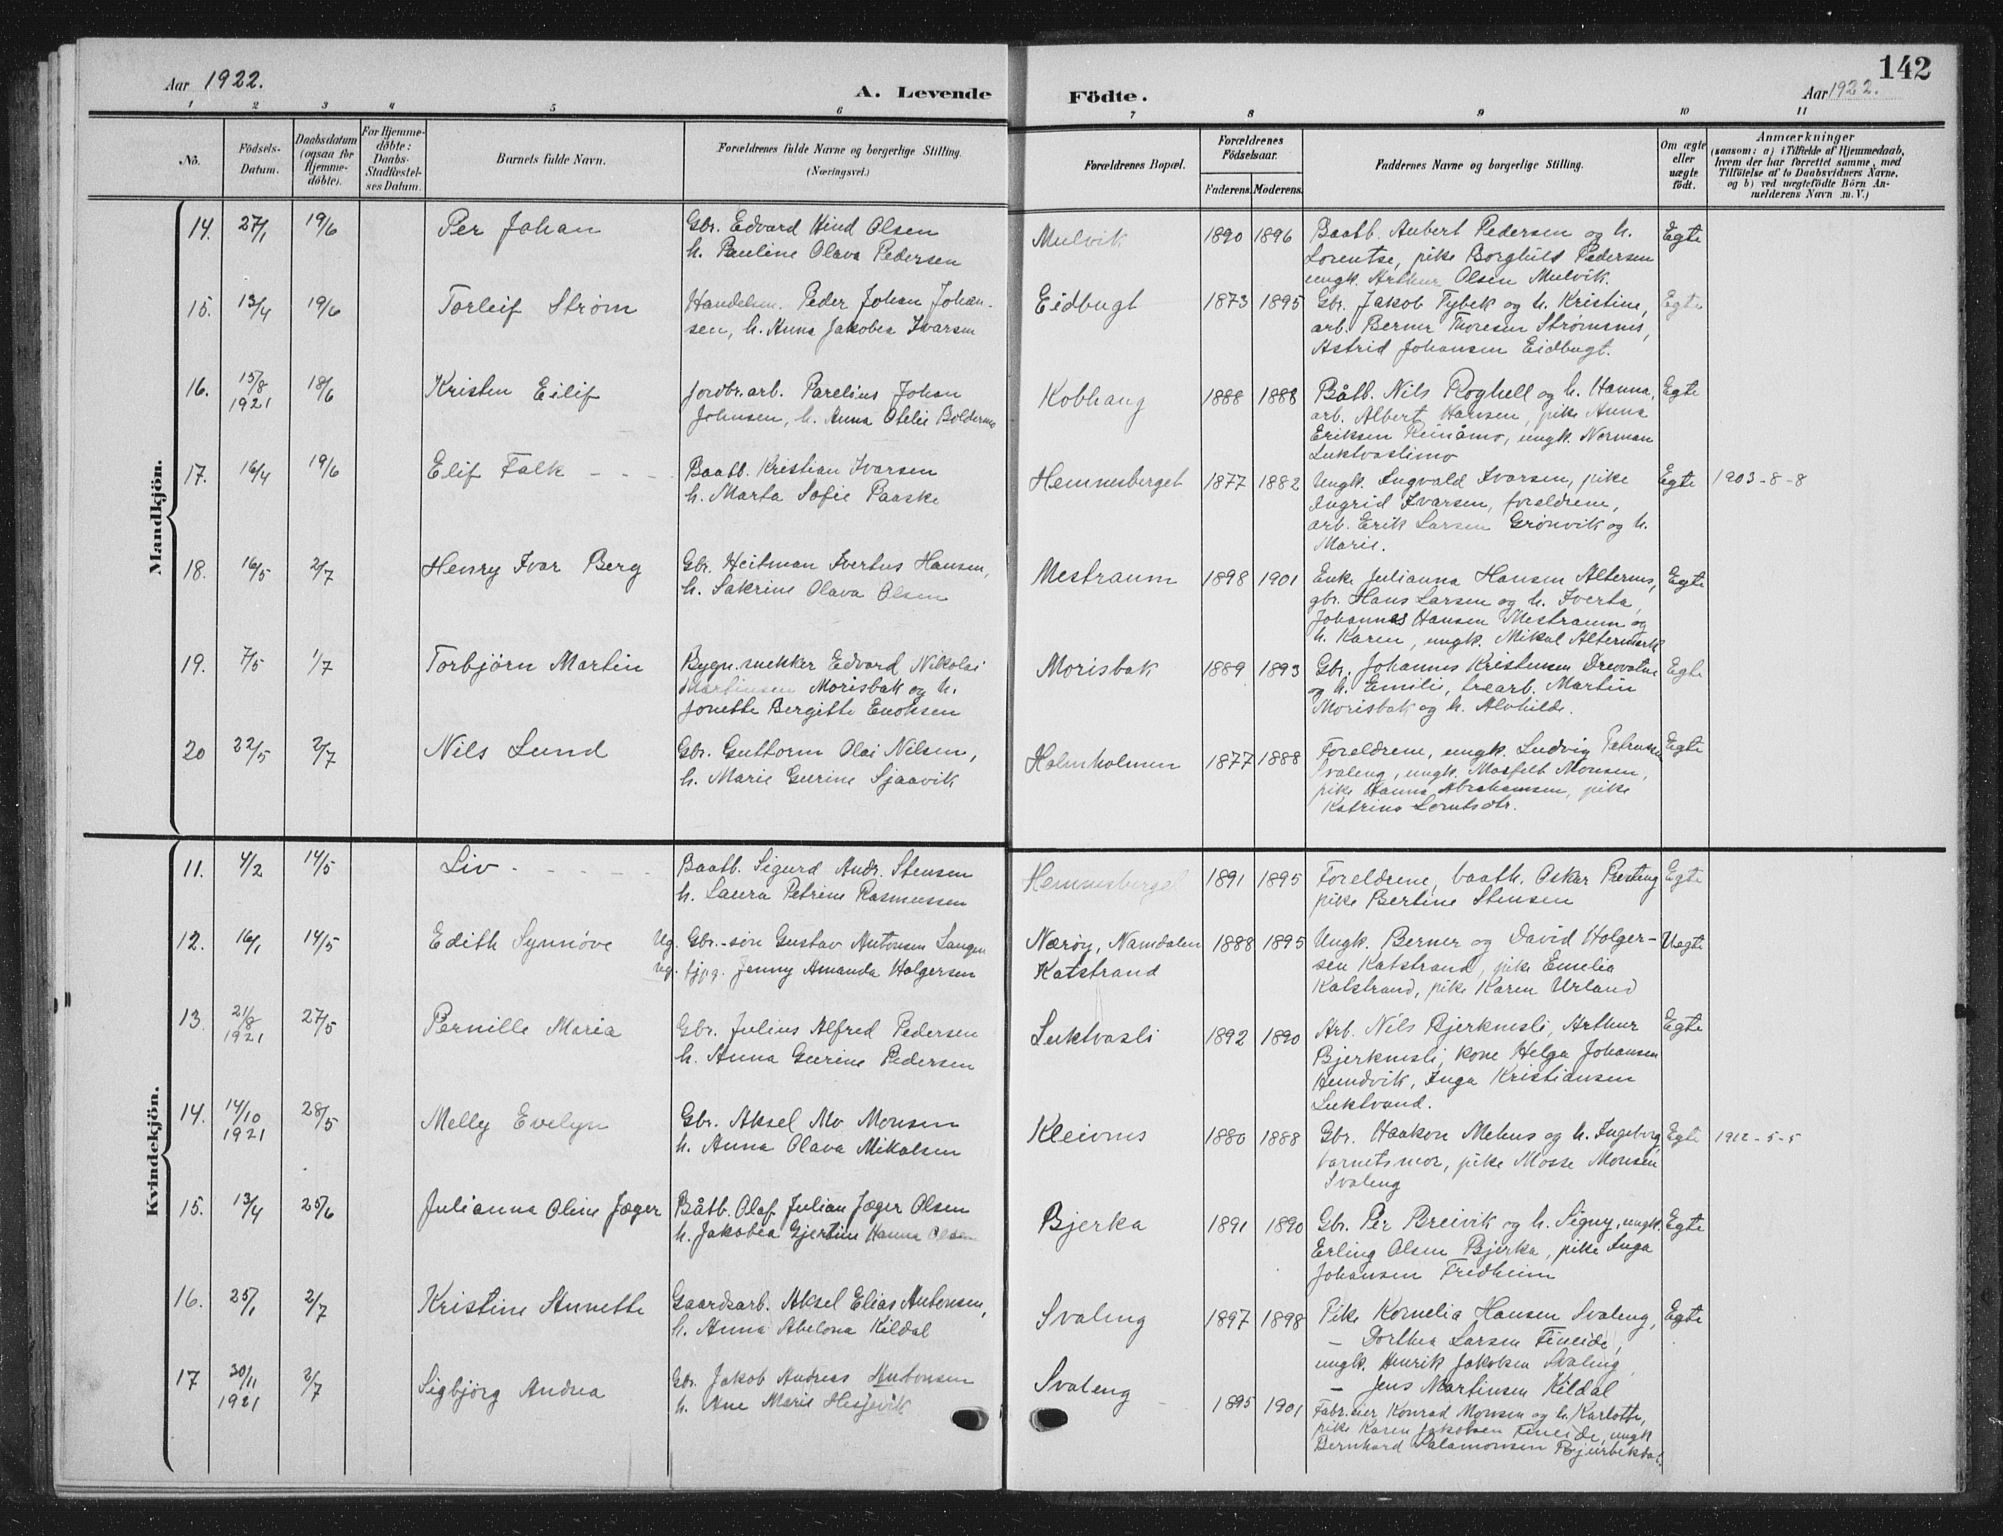 142
Aar 1922.
A. Levende Födte.
Aar 1922.
1 2 3 4 5 6 7 8 9 10 11
No.
Födsels-
Datum.
Daabsdatum
(ogsaa for
Hjemme-
døbte).
For Hjemme-
døbte:
Daabs-
Stadfæstel-
ses Datum.
Barnets fulde Navn.
Forældrenes fulde Navne og borgerlige Stilling.
(Næringsvei.)
Forældrenes Bopæl.
Forældrenes
Födselsaar.
Faderens. Moderens.
Faddernes Navne og borgerlige Stilling.
Om ægte
eller
uægte
födt.
Anmærkninger
(saasom: a) i Tilfælde af Hjemmedaab,
hvem der har forrettet samme, med
Tilföielse af to Daabsvidners Navne,
og b) ved uægtefödte Börn An-
melderens Navn m. V.)
Mandkjön.
14. 27/1 19/6 Per Johan
Gbr. Edvard Hind Olsen
h. Pauline Olava Pedersen
Mulvik 1890 1896
Baatb. Aubert Pedersen og h.
Lorentse, pike Borghild Pedersen
ungk. Arthur Olsen Mulvik.
Egte
15. 13/4 19/6 Torleif Strøm
Handelsm. Peder Johan Johan-
sen, h. Anna Jakobea Ivarsen
Eidbugt 1873 1895
Gbr. Jakob Tybek og h. Kristine,
arb. Berner Thoresen Strømsnes,
Astrid Johansen Eidbugt.
Egte
16. 15/8 1921 18/6 Kristen Eilif
Jordbr.arb. Parelius Johan
Johnsen, h. Anna Otelie Boldermo
Kobhaug 1888 1888
Båtb. Nils Roghell og h. Hanna,
arb. Albert Hansen, pike Anna
Eriksen Reinåmo, ungk. Norman
Luktvaslimo
Egte
17. 16/4 19/6 Elif Falk - -
Baatb. Kristian Ivarsen
h. Marta Sofie Paaske
Hemnesberget 1877 1882
Ungk. Ingvald Ivarsen, pike
Ingrid Ivarsen, foreldrene,
arb. Erik Larsen Grönvik og h.
Marie.
Egte 1903-8-8
18. 16/5 2/7 Henry Ivar Berg
Gbr. Heitman Ivertus Hansen,
h. Sakrine Olava Olsen
Mestraum 1898 1901
Enke Julianna Hansen Alternes,
gbr. Hans Larsen og h. Iverta,
Johannes Hansen Mestraum og
h. Karen, ungk. Mikal Altermark
Egte
19. 7/5 1/7 Torbjörn Martin
Bygn.snekker Edvard Nikolai
Martinsen Morisbak og h.
Jonette Bergitte Enoksen
Morisbak 1889 1893
Gbr. Johannes Kristensen Drevvatne
og h. Emilie, trearb. Martin
Morisbak og h. Alvhilde.
Egte
20 22/5 2/7 Nils Lund
Gbr. Guttorm Olai Nilsen,
h. Marie Gurine Sjaavik
Holmholmen 1877 1888
Foreldrene, ungk. Ludvig Petrussen
Svaleng, ungk. Mosfelt Monsen,
pike Hanna Abrahamsen, pike
Katrine Lorntsdtr.
Egte
Kvindekjön.
11. 4/2 14/5 Liv - - - - -
Baatb. Sigurd Andr. Stensen
h. Laura Petrine Rasmussen
Hemnesberget 1891 1895
Foreldrene, baatb. Oskar Presteng
pike Bertine Stensen
Egte
12. 16/1 14/5 Edith Synnöve
Ug. Gbr.-søn Gustav Antonsen Langen
ug. tjpg. Jenny Amanda Holgersen
Nærøy, Namdalen
Katstrand
1888 1895
Ungk. Berner og David Holger-
sen Katstrand, pike Emelia
Katstrand, pike Karen Urland
Uegte
13. 21/8 1921 27/5 Pernille Maria
Gbr. Julius Alfred Pedersen
h. Anna Gurine Pedersen
Luktvasli 1892 1890
Arb. Nils Bjerknesli, Arthur
Bjerknesli, kone Helga Johansen
Hundvik, Inga Kristiansen
Luktvand.
Egte
14. 14/10 1921 28/5 Melly Evelyn
Gbr. Aksel Mo Monsen
h. Anna Olava Mikalsen
Kleivnes 1880 1888
Gbr. Haakon Mehus og h. Ingeborg,
barnetsmor, pike Mosse Monsen
Svaleng
Egte 1912-5-5
15. 13/4 25/6 Julianna Oline Jæger
Båtb. Olaf Julian Jæger Olsen
h. Jakobea Gjertine Hanna Olsen
Bjerka 1891 1890
Gbr. Per Breivik og h. Signy, ungk.
Erling Olsen Bjerka, pike Inga
Johansen Fredheim
Egte
16. 25/1 2/7 Kristine Annette
Gaardsarb. Aksel Elias Antonsen,
h. Anna Abelona Kildal
Svaleng 1897 1898
Pike Kornelia Hansen Svaleng,
— Dorthea Larsen Fineide,
ungk. Henrik Jakobsen Svaleng
— Jens Martinsen Kildal
Egte
17 30/11 1921 2/7 Sigbjörg Andrea
Gbr. Jakob Andreas Antonsen
h. Ane Marie Hesjevik
Svaleng 1895 1901
Fabr.eier Konrad Monsen og h. Karlotte,
pike Karen Jakobsen Fineide, ungk
Bernhard Salamonsen Bjurbekdal.